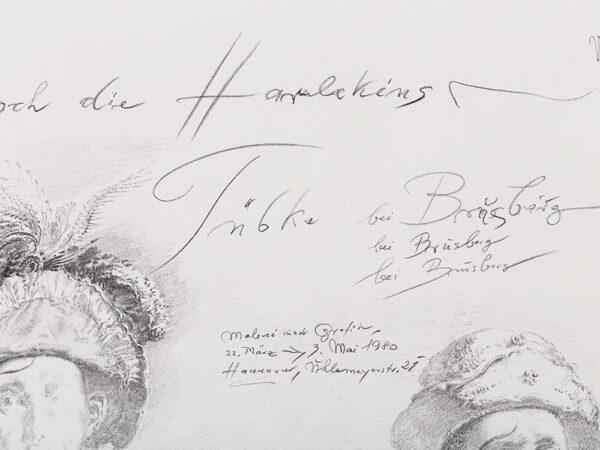 och die Harlekins
Tübke bei Brusberg
bei Brusberg
bei Brusberg
Malerei und Grafik,
22. März → 3. Mai 1980
Hannover, Uhlemeyerstr. 21